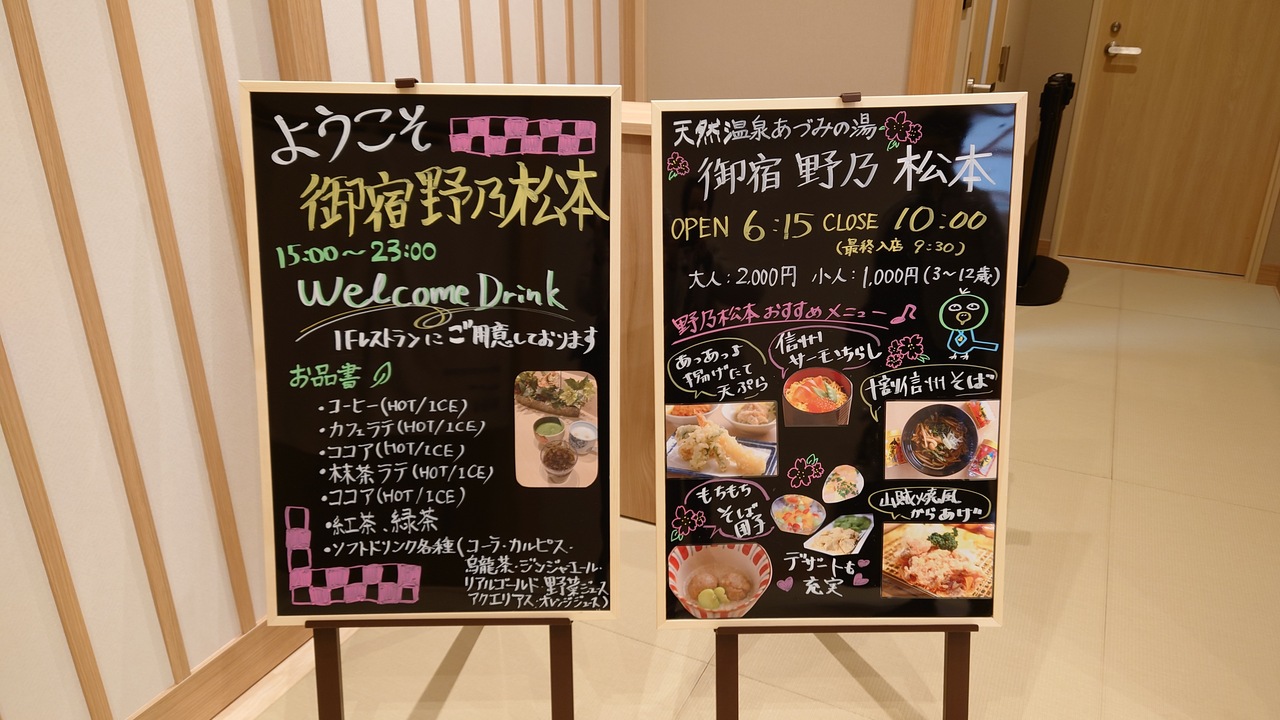 ようこそ
御宿野乃松本
15:00〜23:00
Welcome Drink
1Fレストランにご用意しております
お品書
・コーヒー(HOT/ICE)
・カフェラテ(HOT/ICE)
・ココア(HOT/ICE)
・抹茶ラテ(HOT/ICE)
・ココア(HOT/ICE)
・紅茶、緑茶
・ソフトドリンク各種(コーラ・カルピス・
烏龍茶・ジンジャエール・
リアルゴールド・野菜ジュース
アクエリアス・オレンジジュース)
天然温泉あづみの湯
御宿 野乃 松本
OPEN 6:15 CLOSE 10:00
(最終入店 9:30)
大人:2,000円 小人:1,000円(3〜12歳)
野乃松本おすすめメニュー♪
あっあっよ
揚げたて
天ぷら
信州
サーモンちらし
十割信州そば
もちもち
そば
団子
山賊焼風
からあげ
デザートも
充実